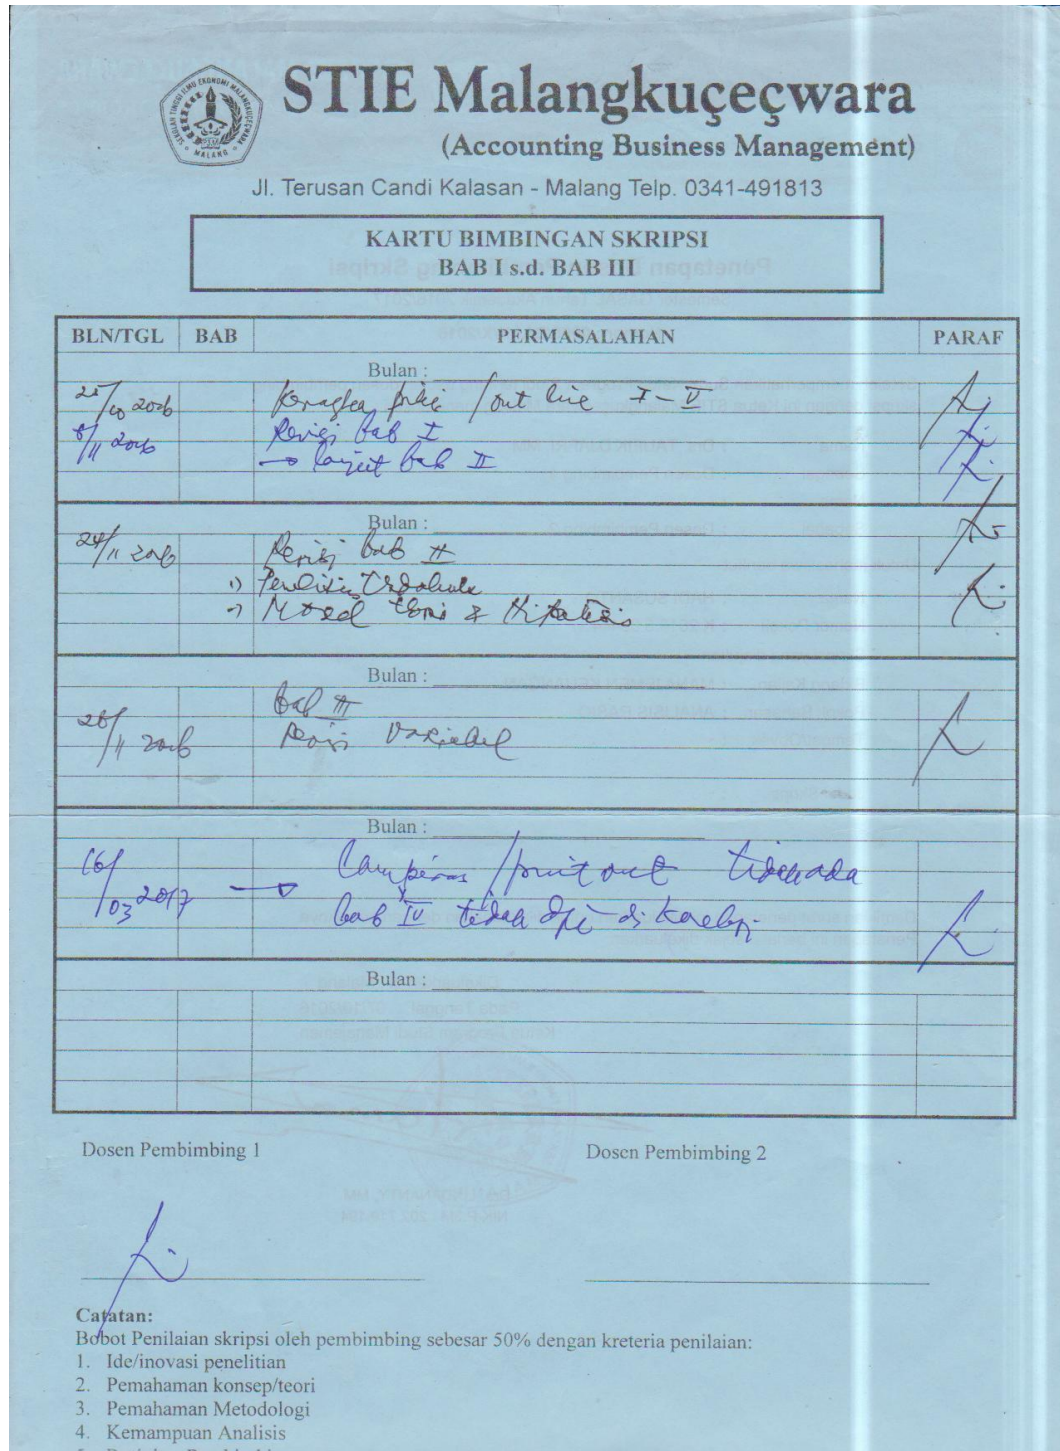 STIE Malangkuçeçwara
(Accounting Business Management)
Jl. Terusan Candi Kalasan - Malang Telp. 0341-491813
KARTU BIMBINGAN SKRIPSI
BAB I s.d. BAB III
BLN/TGL BAB PERMASALAHAN PARAF
Bulan :
25/10 2016 /out line I - V
8/11 2016 Revisi bab I
→ lanjut bab II
Bulan :
24/11 2016 Revisi bab II
1)
→ &
Bulan :
bab III
28/11 2016 Revisi Variabel
Bulan :
16/03 2017 → Lampiran /print out tidak ada
bab IV tidak di
Bulan :
Dosen Pembimbing 1 Dosen Pembimbing 2
Catatan:
Bobot Penilaian skripsi oleh pembimbing sebesar 50% dengan kreteria penilaian:
1. Ide/inovasi penelitian
2. Pemahaman konsep/teori
3. Pemahaman Metodologi
4. Kemampuan Analisis